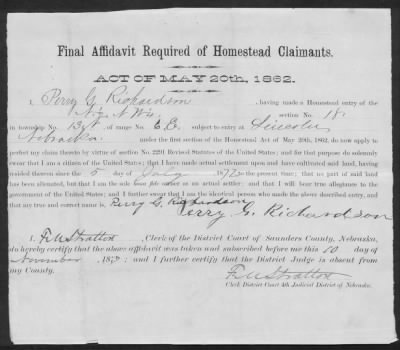 Final Affidavit Required of Homestead Claimants.
ACT OF MAY 20th, 1862.
I, Perry G. Richardson, having made a Homestead entry of the
N½ N W¼ section No. 18
in township No. 13 N. of range No. 6 E. subject to entry at Lincoln
Nebraska under the first section of the Homestead Act of May 20th, 1862, do now apply to
perfect my claim thereto by virtue of section No. 2291 Revised Statutes of the United States; and for that purpose do solemnly
swear that I am a citizen of the United States; that I have made actual settlement upon and have cultivated said land, having
resided thereon since the 5 day of July 1872 to the present time; that no part of said land
has been alienated, but that I am the sole bona fide owner as an actual settler; and that I will bear true allegiance to the
government of the United States; and I further swear that I am the identical person who made the above described entry, and
that my true and correct name is, Perry G. Richardson
Perry G. Richardson
I, F. M. Stratton, Clerk of the District Court of Saunders County, Nebraska,
do hereby certify that the above affidavit was taken and subscribed before me this 10 day of
November, 187 : and I further certify that the District Judge is absent from
my County.
F. M. Stratton
Clerk District Court 4th Judicial District of Nebraska.